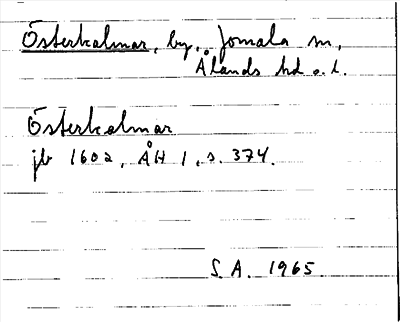 Österkalmar, by, Jomala sn,
Ålands hd o. l.
Österkalmar
jb 1602, ÅH 1, s. 374.
S.A. 1965